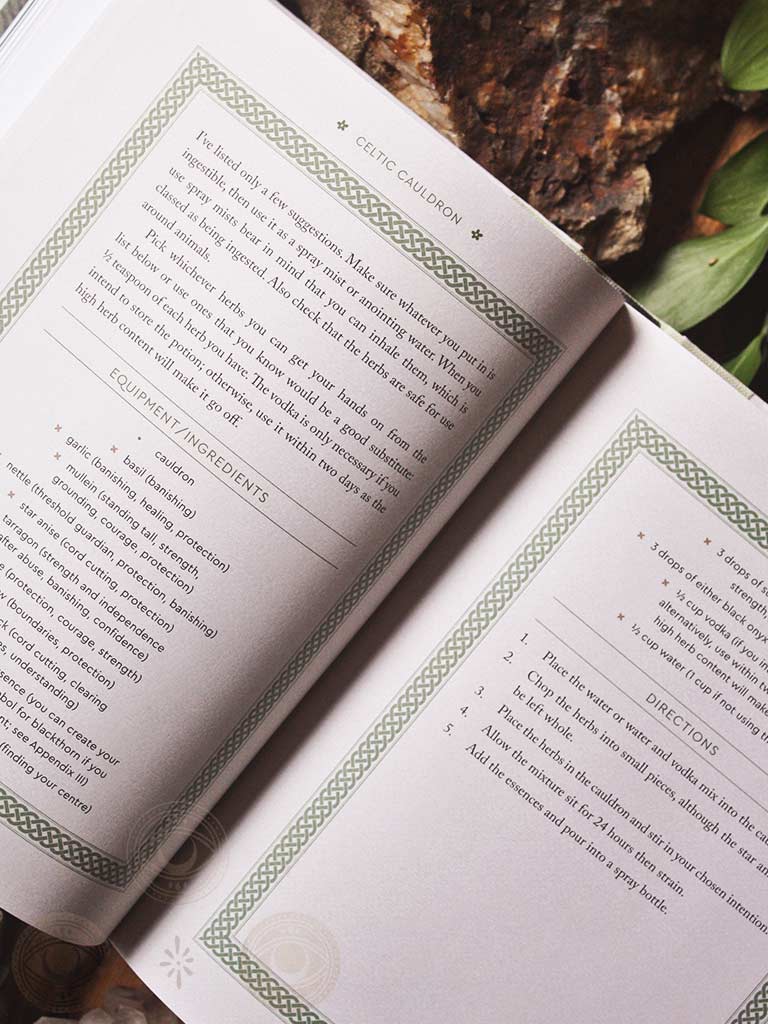 CELTIC CAULDRON
I've listed only a few suggestions. Make sure whatever you put in is
ingestible, then use it as a spray mist or anointing water. When you
use spray mists bear in mind that you can inhale them, which is
classed as being ingested. Also check that the herbs are safe for use
around animals.
Pick whichever herbs you can get your hands on from the
list below or use ones that you know would be a good substitute:
½ teaspoon of each herb you have. The vodka is only necessary if you
intend to store the potion; otherwise, use it within two days as the
high herb content will make it go off.
EQUIPMENT/INGREDIENTS
cauldron
basil (banishing)
garlic (banishing, healing, protection)
mulein (standing tall, strength,
grounding, courage, protection)
nettle (threshold guardian, protection, banishing)
star anise (cord cutting, protection)
tarragon (strength and independence
after abuse, banishing, confidence)
(protection, courage, strength)
(boundaries, protection)
(cord cutting, clearing
understanding)
(you can create your
for blackthorn if you
see Appendix III)
(finding your centre)
3 drops of
strength,
3 drops of either black onyx
½ cup vodka (if you
alternatively, use within
high herb content will make
½ cup water (1 cup if not using
DIRECTIONS
1. Place the water or water and vodka mix into the
2. Chop the herbs into small pieces, although the star
be left whole.
3. Place the herbs in the cauldron and stir in your chosen intention.
4. Allow the mixture sit for 24 hours then strain.
5. Add the essences and pour into a spray bottle.